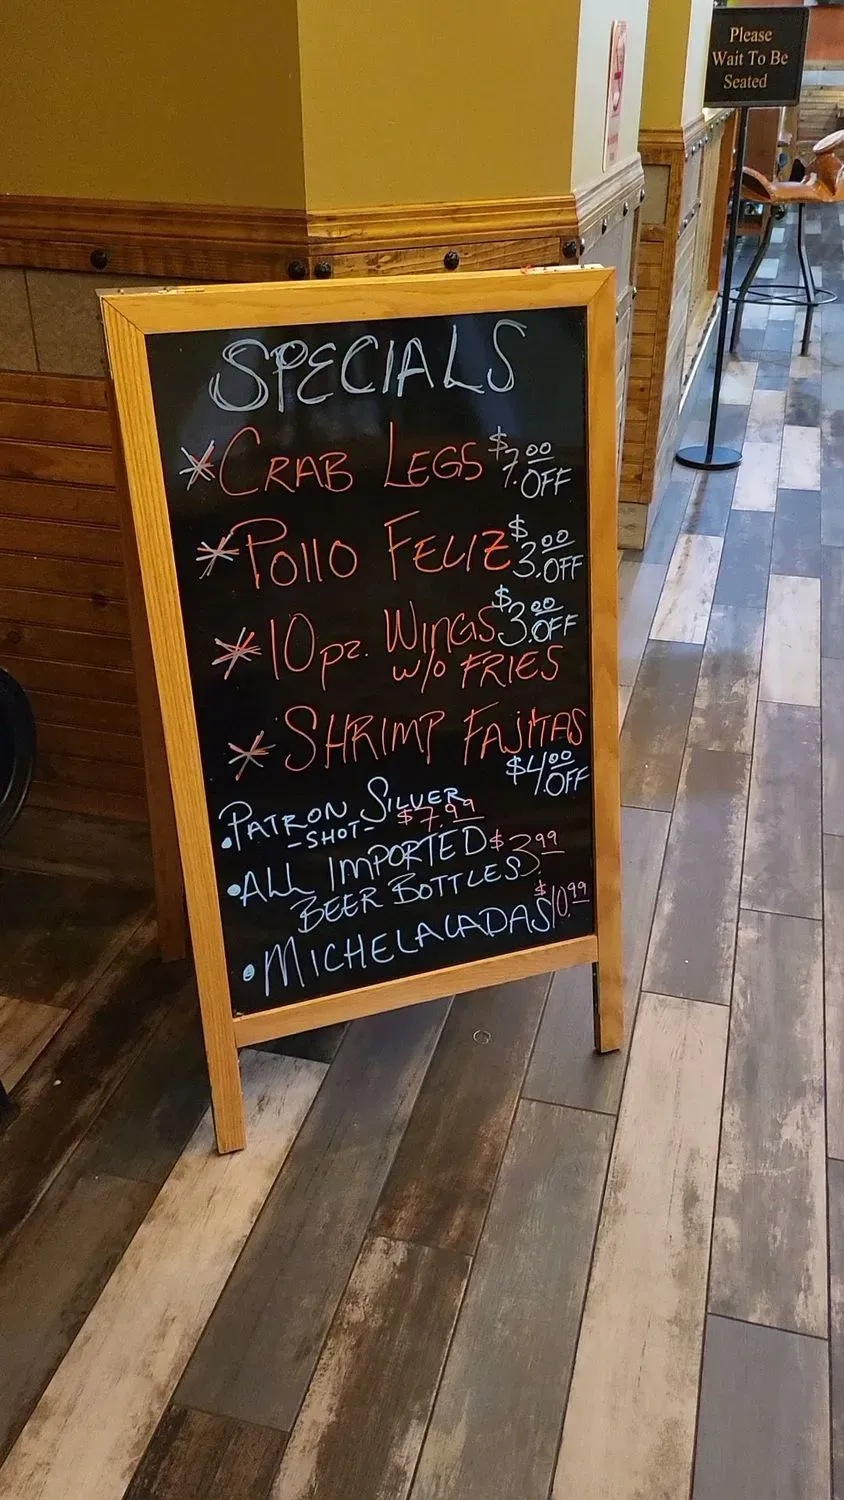 Please
Wait To Be
Seated
SPECIALS
* CRAB LEGS $7.00 OFF
* Pollo FELIZ $3.00 OFF
* 10 pz. WINGS $3.00 OFF
w/o FRIES
* SHRIMP FAJITAS
$4.00 OFF
• PATRON SILVER
-SHOT- $7.99
• ALL IMPORTED $3.99
BEER BOTTLES
• MICHELALADAS $10.99